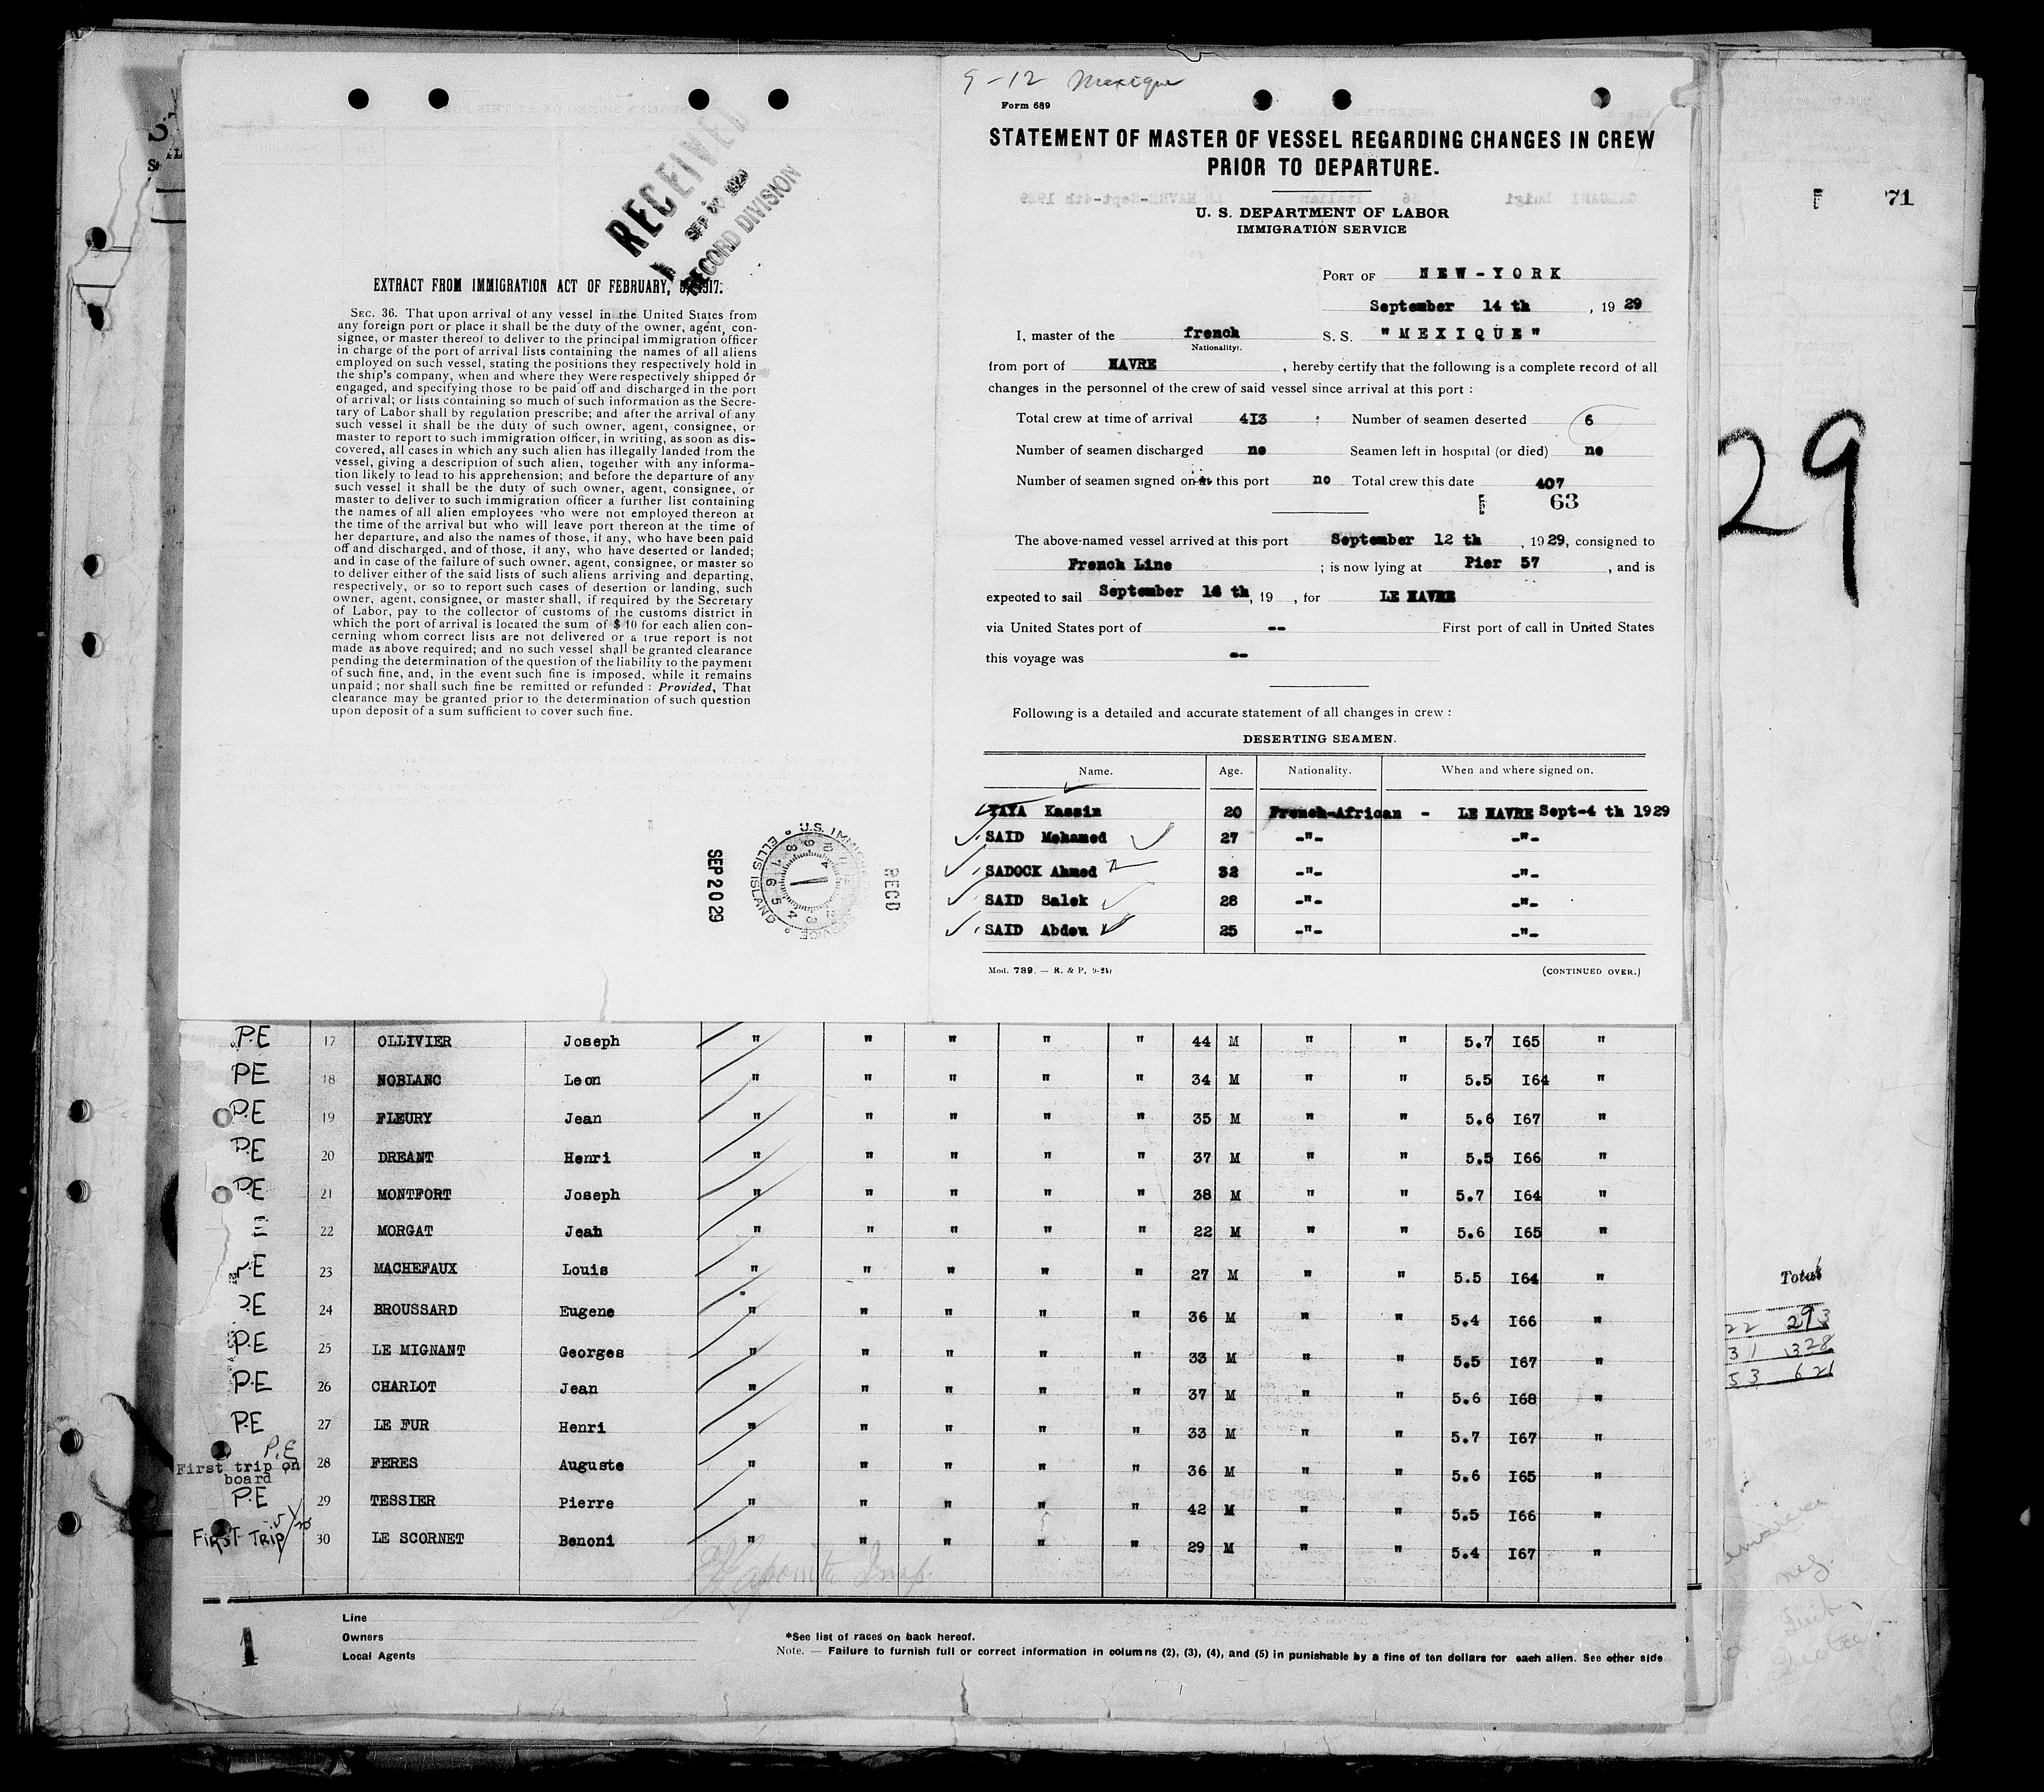 9-12 Mexique
Form 689
STATEMENT OF MASTER OF VESSEL REGARDING CHANGES IN CREW
PRIOR TO DEPARTURE.
U. S. DEPARTMENT OF LABOR
IMMIGRATION SERVICE
PORT OF NEW-YORK
September 14 th , 19 29
I, master of the french S. S. "MEXIQUE"
Nationality.
from port of HAVRE , hereby certify that the following is a complete record of all
changes in the personnel of the crew of said vessel since arrival at this port :
Total crew at time of arrival 4I3 : Number of seamen deserted 6
Number of seamen discharged no Seamen left in hospital (or died) no
Number of seamen signed on at this port no Total crew this date 407
63
The above-named vessel arrived at this port September 12 th , 19 29, consigned to
French Line ; is now lying at Pier 57 , and is
expected to sail September th, 19 , for LE HAVRE
via United States port of -- First port of call in United States
this voyage was --
Following is a detailed and accurate statement of all changes in crew :
DESERTING SEAMEN.
Name. Age. Nationality. When and where signed on.
YAYA Kassin 20 French-African - LE HAVRE Sept-4 th 1929
SAID Mohamed 27 -"- -"-
SADOCK Ahmed 32 -"- -"-
SAID Salek 28 -"- -"-
SAID Abdou 25 -"- -"-
Mod. 789. — R. & P. (CONTINUED OVER.)
RECEIVED
SEP 1929
RECORD DIVISION
EXTRACT FROM IMMIGRATION ACT OF FEBRUARY, 5, 1917.
SEC. 36. That upon arrival of any vessel in the United States from
any foreign port or place it shall be the duty of the owner, agent, con-
signee, or master thereof to deliver to the principal immigration officer
in charge of the port of arrival lists containing the names of all aliens
employed on such vessel, stating the positions they respectively hold in
the ship's company, when and where they were respectively shipped or
engaged, and specifying those to be paid off and discharged in the port
of arrival; or lists containing so much of such information as the Secre-
tary of Labor shall by regulation prescribe; and after the arrival of any
such vessel it shall be the duty of such owner, agent, consignee, or
master to report to such immigration officer, in writing, as soon as dis-
covered, all cases in which any such alien has illegally landed from the
vessel, giving a description of such alien, together with any informa-
tion likely to lead to his apprehension; and before the departure of any
such vessel it shall be the duty of such owner, agent, consignee, or
master to deliver to such immigration officer a further list containing
the names of all alien employees who were not employed thereon at
the time of the arrival but who will leave port thereon at the time of
her departure, and also the names of those, if any, who have been paid
off and discharged, and of those, if any, who have deserted or landed;
and in case of the failure of such owner, agent, consignee, or master so
to deliver either of the said lists of such aliens arriving and departing,
respectively, or so to report such cases of desertion or landing, such
owner, agent, consignee, or master shall, if required by the Secretary
of Labor, pay to the collector of customs of the customs district in
which the port of arrival is located the sum of $ 10 for each alien con-
cerning whom correct lists are not delivered or a true report is not
made as above required; and no such vessel shall be granted clearance
pending the determination of the question of the liability to the payment
of such fine, and, in the event such fine is imposed, while it remains
unpaid ; nor shall such fine be remitted or refunded : Provided, That
clearance may be granted prior to the determination of such question
upon deposit of a sum sufficient to cover such fine.
SEP 20 29
U.S. IMMIGRATION SERVICE
ELLIS ISLAND
RECD
P.E 17 OLLIVIER Joseph " " " " " 44 M " " 5.7 I65 "
PE 18 NOBLANC Leon " " " " " 34 M " " 5.5 I64 "
P.E 19 FLEURY Jean " " " " " 35 M " " 5.6 I67 "
P.E 20 DREANT Henri " " " " " 37 M " " 5.5 I66 "
P.E 21 MONTFORT Joseph " " " " " 38 M " " 5.7 I64 "
E 22 MORGAT Jean " " " " " 22 M " " 5.6 I65 "
P.E 23 MACHEFAUX Louis " " " " " 27 M " " 5.5 I64 "
P.E 24 BROUSSARD Eugene " " " " " 36 M " " 5.4 I66 "
P.E 25 LE MIGNANT Georges " " " " " 33 M " " 5.5 I67 "
P.E 26 CHARLOT Jean " " " " " 37 M " " 5.6 I68 "
P.E 27 LE FUR Henri " " " " " 33 M " " 5.7 I67 "
P.E First trip on board 28 FERES Auguste " " " " " 36 M " " 5.6 I65 "
P.E 29 TESSIER Pierre " " " " " 42 M " " 5.5 I66 "
FIRST TRIP 30 LE SCORNET Benoni " " " " " 29 M " " 5.4 I67 "
1
Line
Owners
Local Agents
*See list of races on back hereof.
Note. — Failure to furnish full or correct information in columns (2), (3), (4), and (5) in punishable by a fine of ten dollars for each alien. See other side
71
29
Total
22 293
31 328
53 621